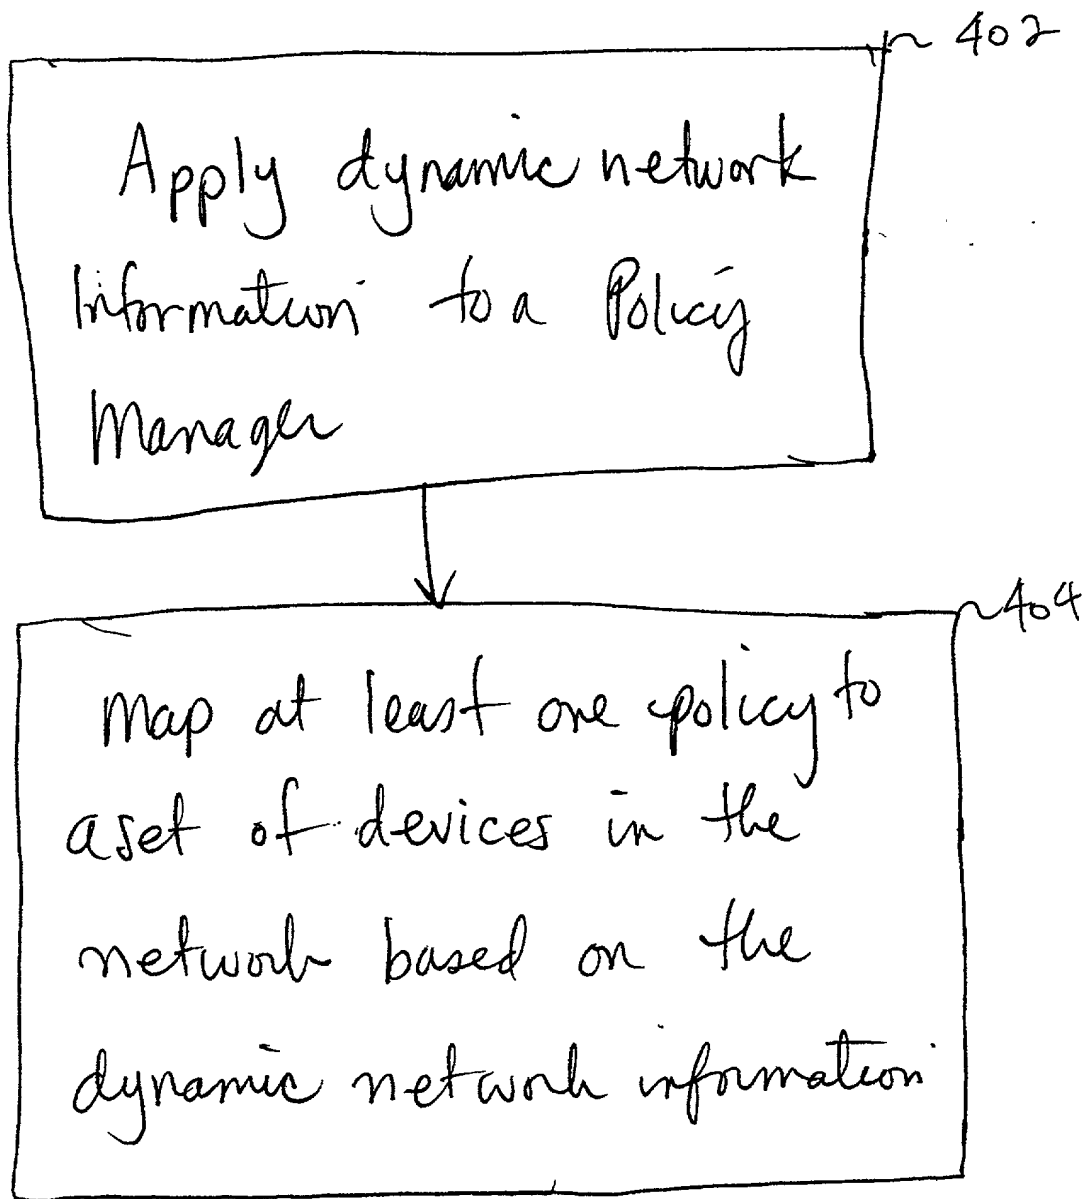 402
Apply dynamic network
Information to a Policy
Manager
404
Map at least one policy to
a set of devices in the
network based on the
dynamic network information